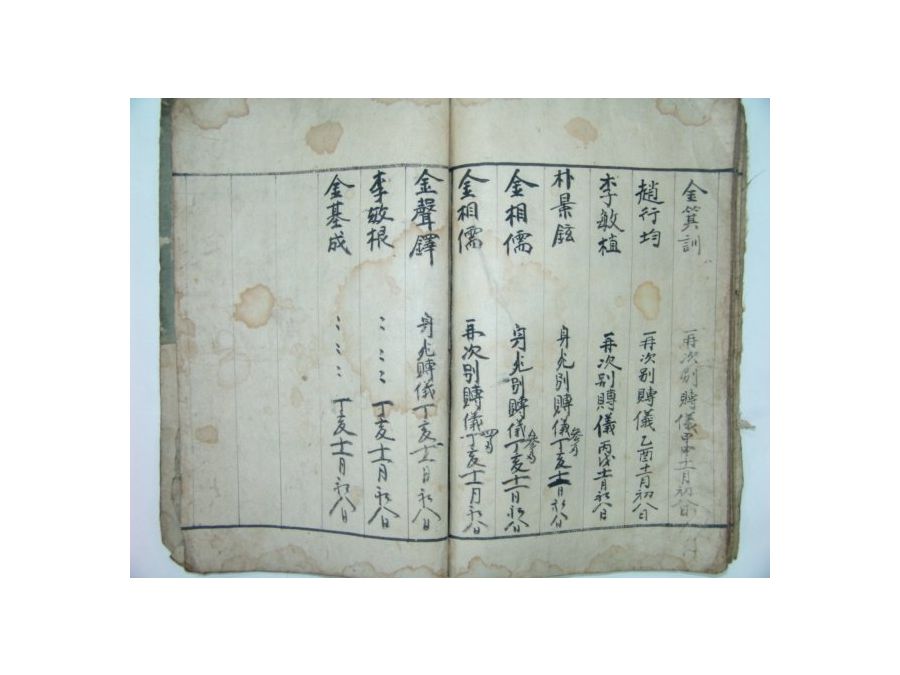 金箕訓 再次別賻儀甲申十一月初八日
趙行均 再次別賻儀乙酉十一月初八日
李敏植 再次別賻儀丙戌十一月初八日
朴景鉉 別賻儀丁亥十一月初八日
金相儒 別賻儀丁亥十一月初八日
金相儒 再次別賻儀丁亥十一月初八日
金聲鐸 賻儀丁亥十一月初八日
李敏根 〻〻〻 丁亥十一月初八日
金基成 〻〻〻 丁亥十一月初八日